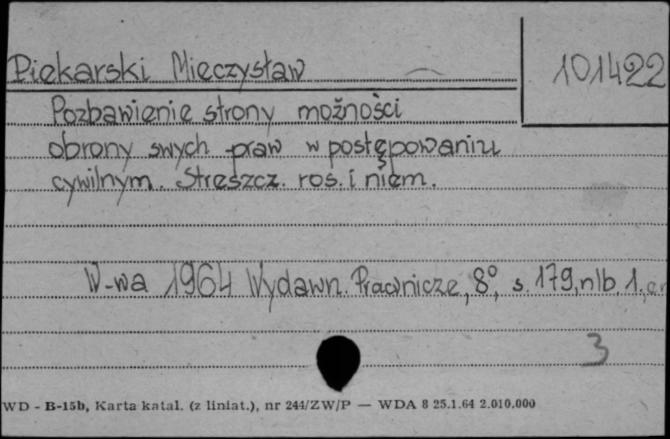 Piekarski Mieczysław
101422
Pozbawienie strony możności
obrony swych praw w postępowaniu
cywilnym. Streszcz. ros. i niem.
W-wa 1964 Wydawn. Prawnicze, 8°, s. 179, nlb. 1.,
3
WD - B-15b, Karta katal. (z liniat.), nr 244/ZW/P — WDA 8 25.1.64 2.010.000